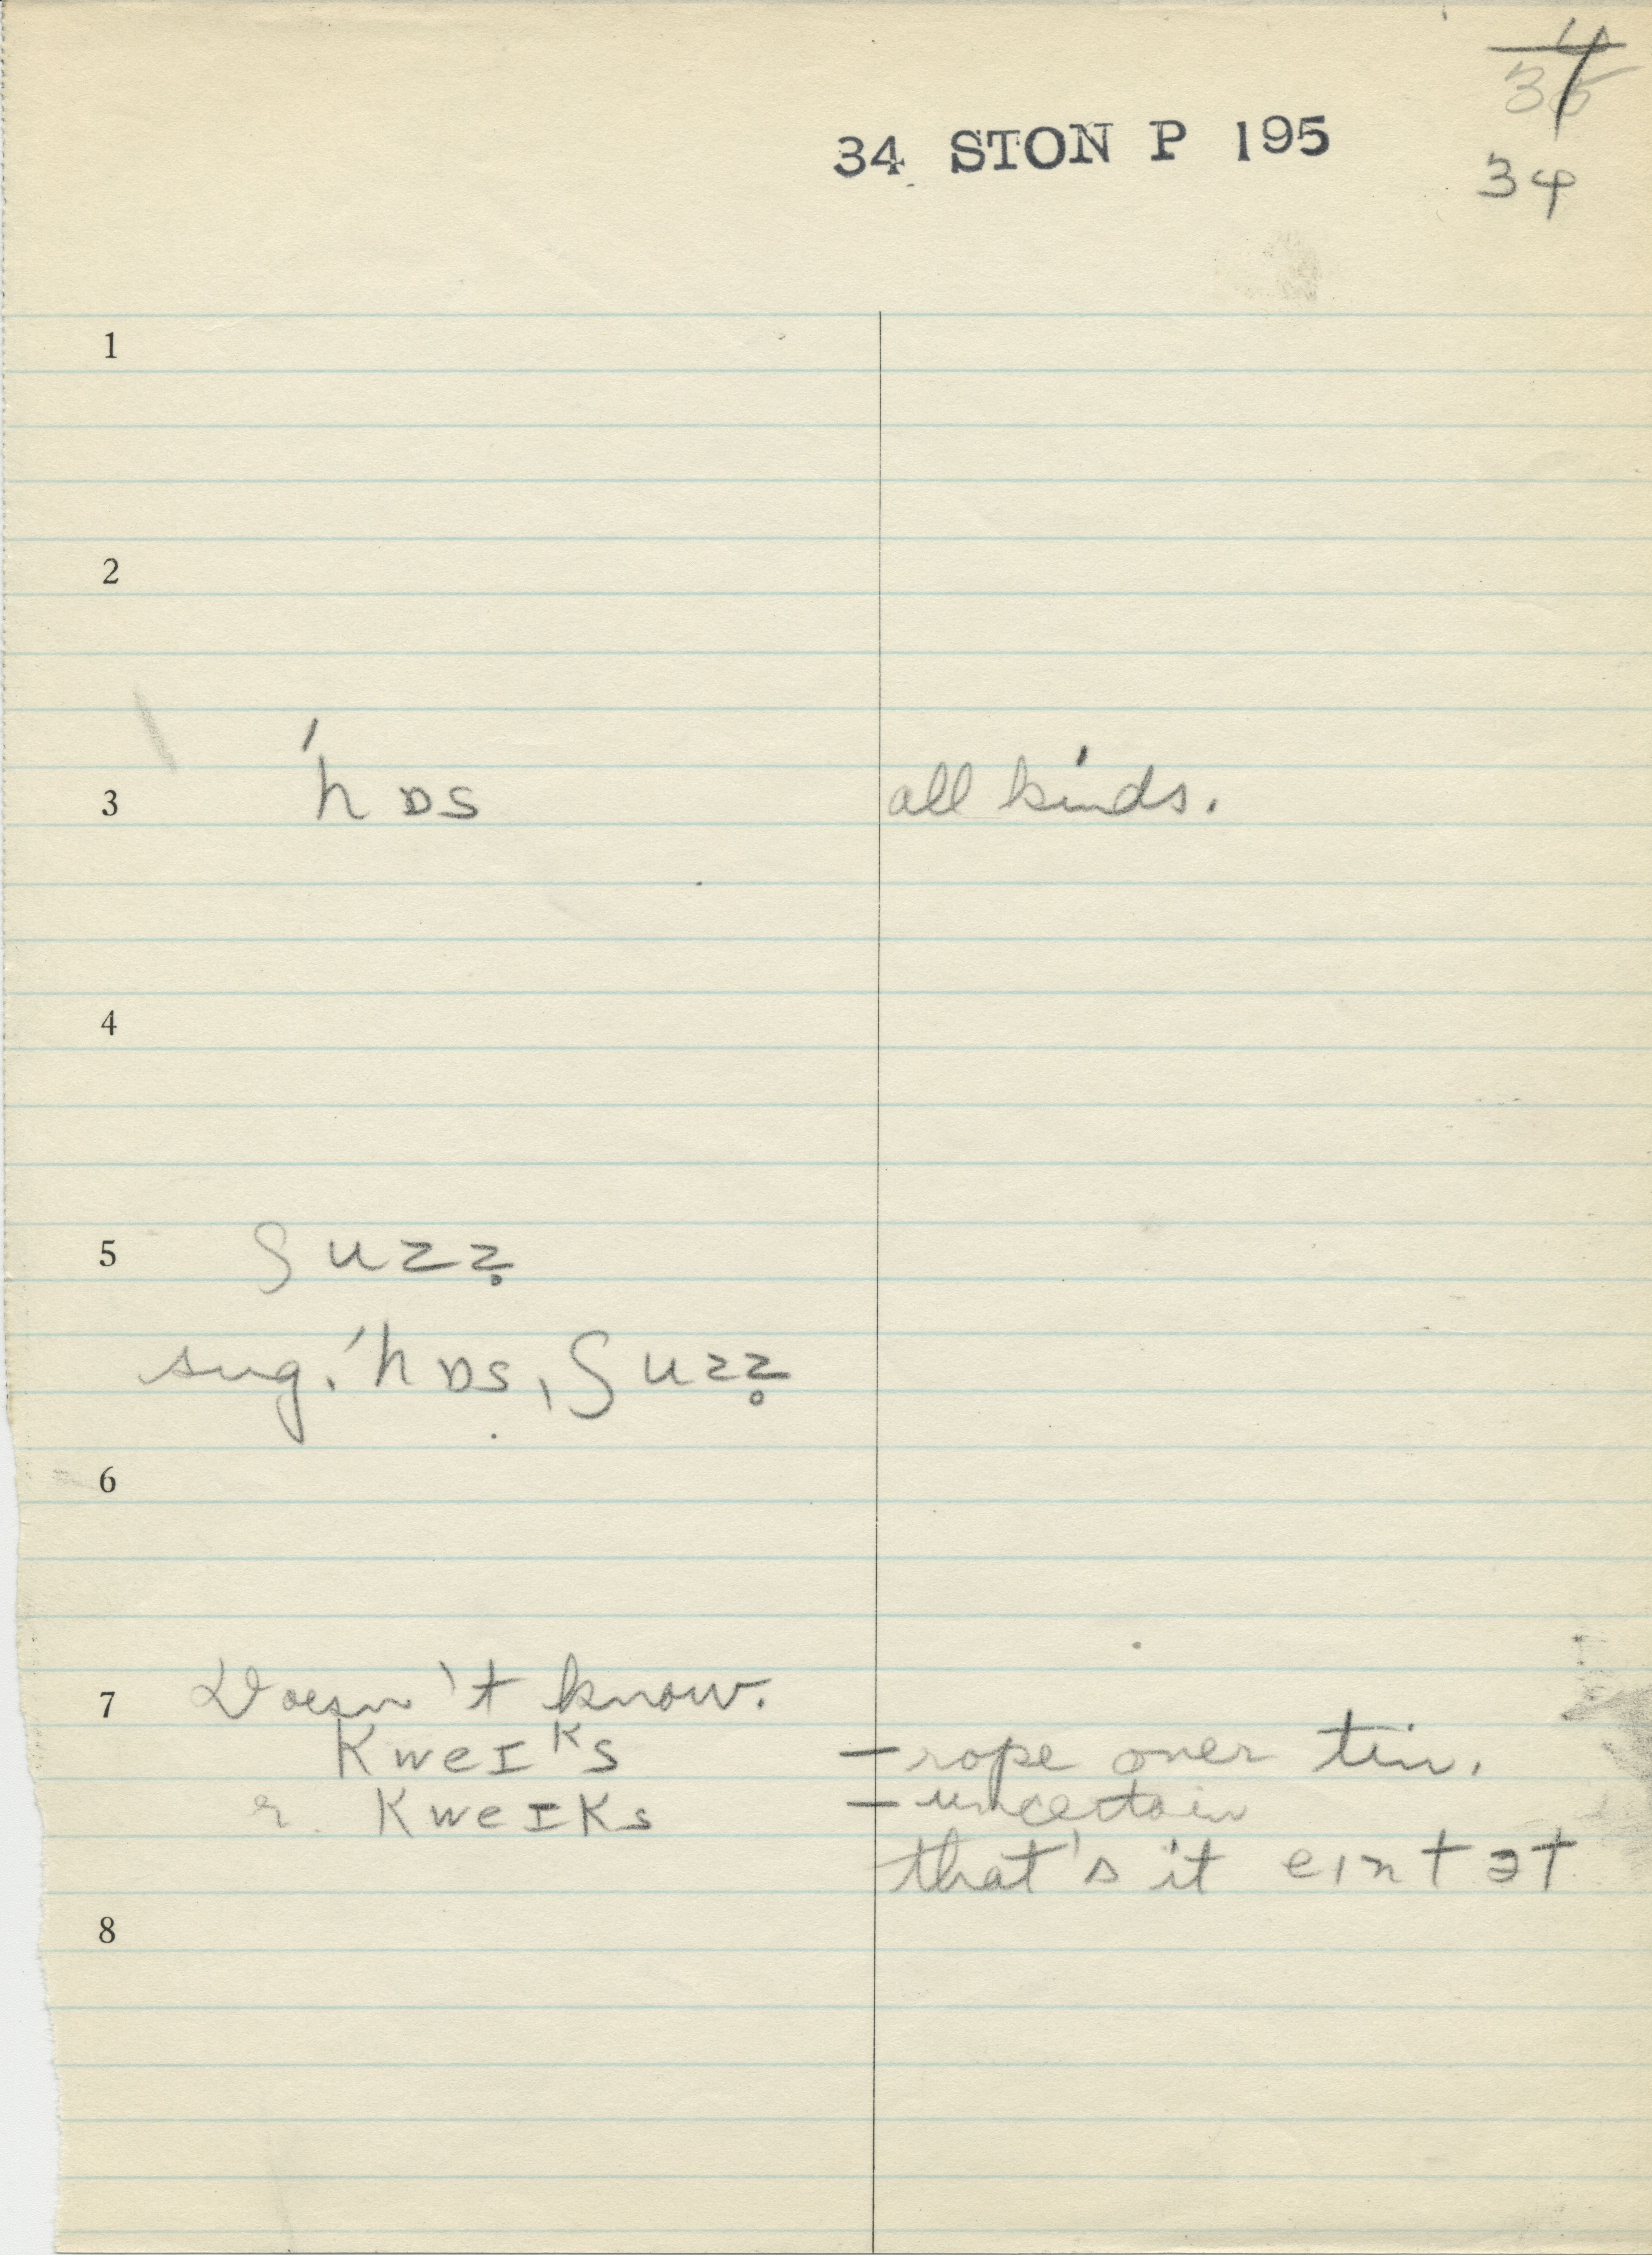 34 STON P 195
34
1
2
3 ˈhɒs all kinds.
4
5 ʃuzz̥
sug. ˈhɒs, ʃuzz̥
6
7 Doesn't know.
kweɪᵏs – rope over tin.
r. kweɪks – uncertain
that's it eɪntət
8